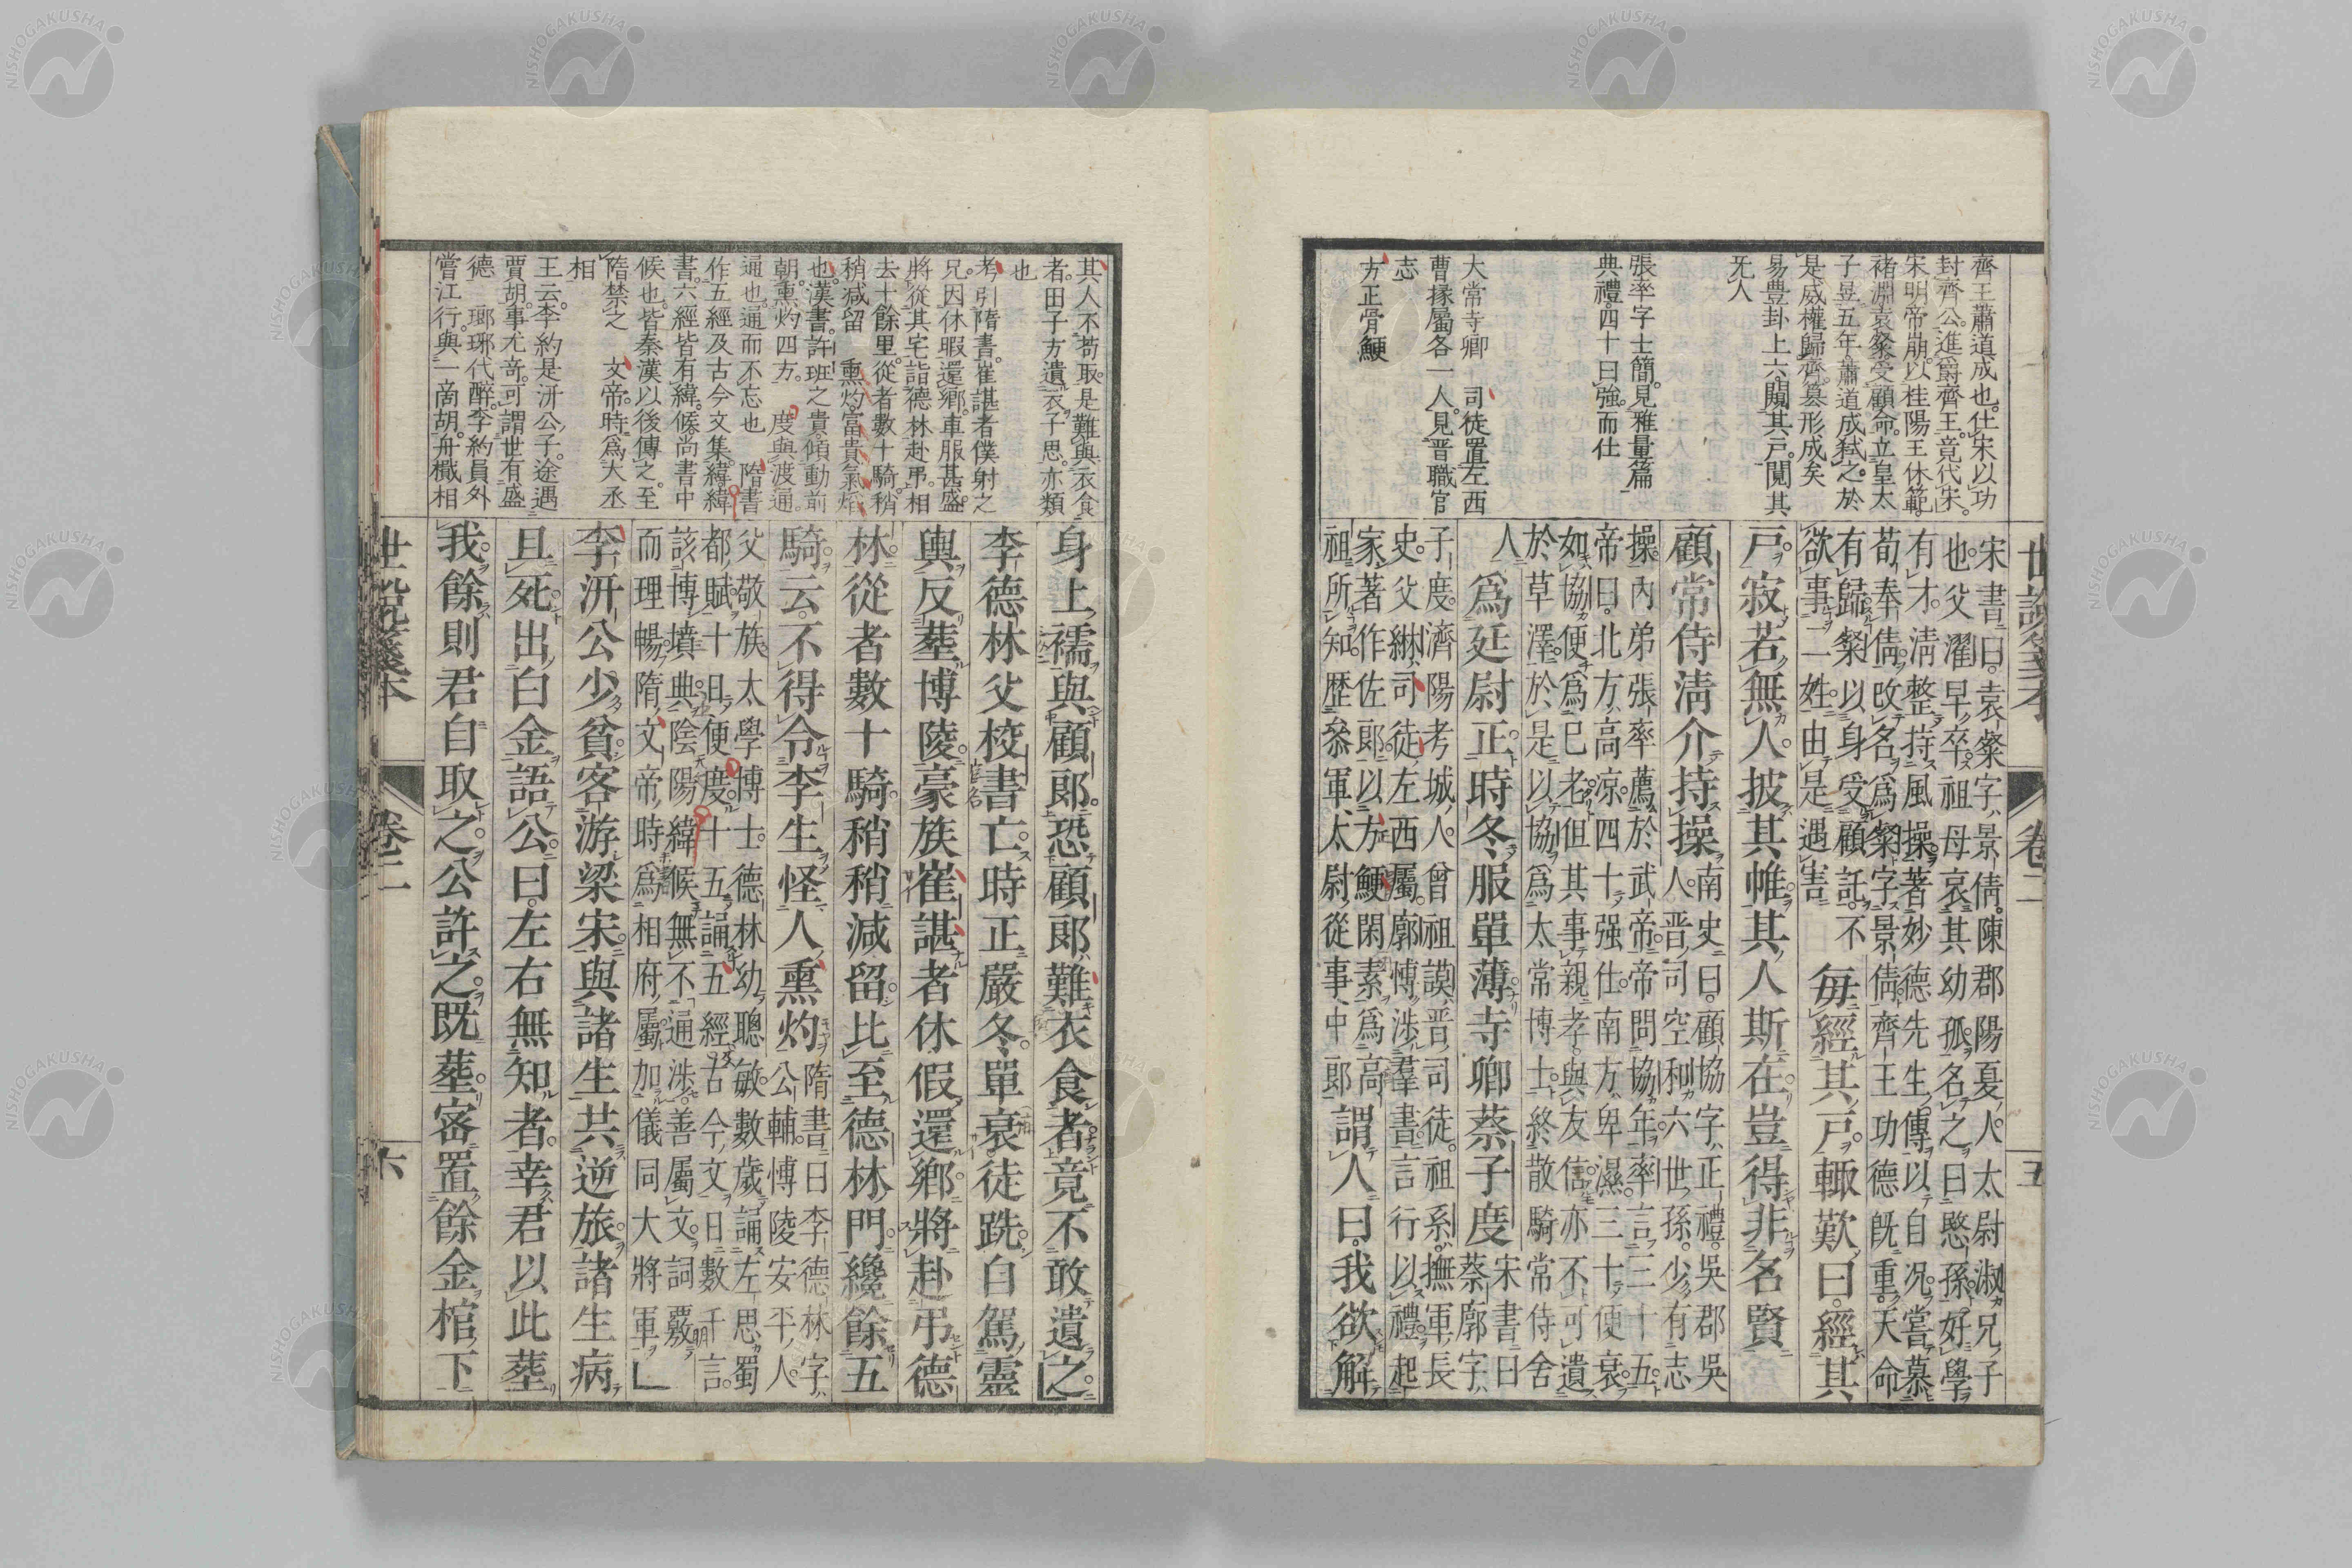 世說箋本 卷二 五
齊王蕭道成也。仕宋以功
封齊公。進爵齊王。竟代宋。
宋明帝崩。以桂陽王休範。
褚淵袁粲受顧命。立皇太
子昱。五年蕭道成弑之。於
是威權歸齊。簒形成矣
易豊卦上六。闚其戸。闃其
无人
張率字士簡。見雅量篇
典禮。四十曰強。而仕
大常寺卿 司徒置左西
曹掾屬各一人。見晋職官
志
方正骨鯁
宋書曰。袁粲字景倩。陳郡陽夏人。太尉淑兄子
也。父濯早卒。祖母哀其幼孤。名之曰愍孫。好學
有才。淸整持風操。著妙德先生傳以自况。嘗慕
荀奉倩。改名爲粲字景倩。齊王功德旣重。天命
有歸。粲以身受顧託。不
欲事二姓。由是遇害
每經其戸。輒歎曰。經其
戸。寂若無人。披其帷。其人斯在。豈得非名賢
顧常侍淸介持操
南史曰。顧協字正禮。吳郡吳
人。晋司空和六世孫。少有志
操。內弟張率薦於武帝。帝問協年。率言三十五。
帝曰。北方高凉。四十强仕。南方卑濕。三十便衰。
如協便爲已老。但其事親孝。與友信。亦不可遺
於草澤。於是以協爲太常博士。終散騎常侍舍
人
爲延尉正。時冬服單薄。寺卿蔡子度
宋書曰
蔡廓字
子度。濟陽考城人。曾祖謨晋司徒。祖系撫軍長
史。父綝司徒左西屬。廓博涉羣書。言行以禮。起
家著作佐郎。以方鯁閑素爲高
祖所知。歴參軍太尉從事中郎
謂人曰。我欲解
其人不苟取。是難與衣食
者。田子方遺衣子思。亦類
也
考。引隋書。崔諶者僕射之
兄。因休暇還鄉。車服甚盛。
將從其宅詣德林赴弔。相
去十餘里。從者數十騎。稍
稍減留 熏灼。富貴氣焰
也。漢書。許班之貴。傾動前
朝。熏灼四方。 度與渡通。
通也。通而不忘也 隋書
作五經及古今文集。緯緯
書。六經皆有緯。候尚書中
候也。皆秦漢以後傳之。至
隋禁之 文帝。時爲大丞
相
王云。李約是汧公子。途遇
賈胡。事尤奇。可謂世有盛
德 瑯琊代醉。李約員外
嘗江行。與一啇胡。舟檝相
身上襦與顧郎。恐顧郎難衣食者。竟不敢遺之
李德林父校書亡。時正嚴冬。單衰徒跣。自駕靈
輿反葬。博陵豪族崔諶者。休假還鄉。將赴弔德
林。從者數十騎。稍稍減留。比至德林門。纔餘五
騎。云。不得令李生怪人熏灼
隋書曰李德林字
公輔。博陵安平人。
父敬族太學博士。德林幼聰敏。數歲誦左思蜀
都賦。十日便度。十五誦五經古今文。日數千言。
該博墳典。陰陽緯候無不通涉。善屬文。詞覈
而理暢。隋文帝時爲相府屬。加儀同大將軍
李汧公少貧。客游梁宋。與諸生共逆旅。諸生病
且死。出白金語公曰。左右無知者。幸君以此葬
我。餘則君自取之。公許之。既葬。密置餘金棺下
世説箋本 卷二 六